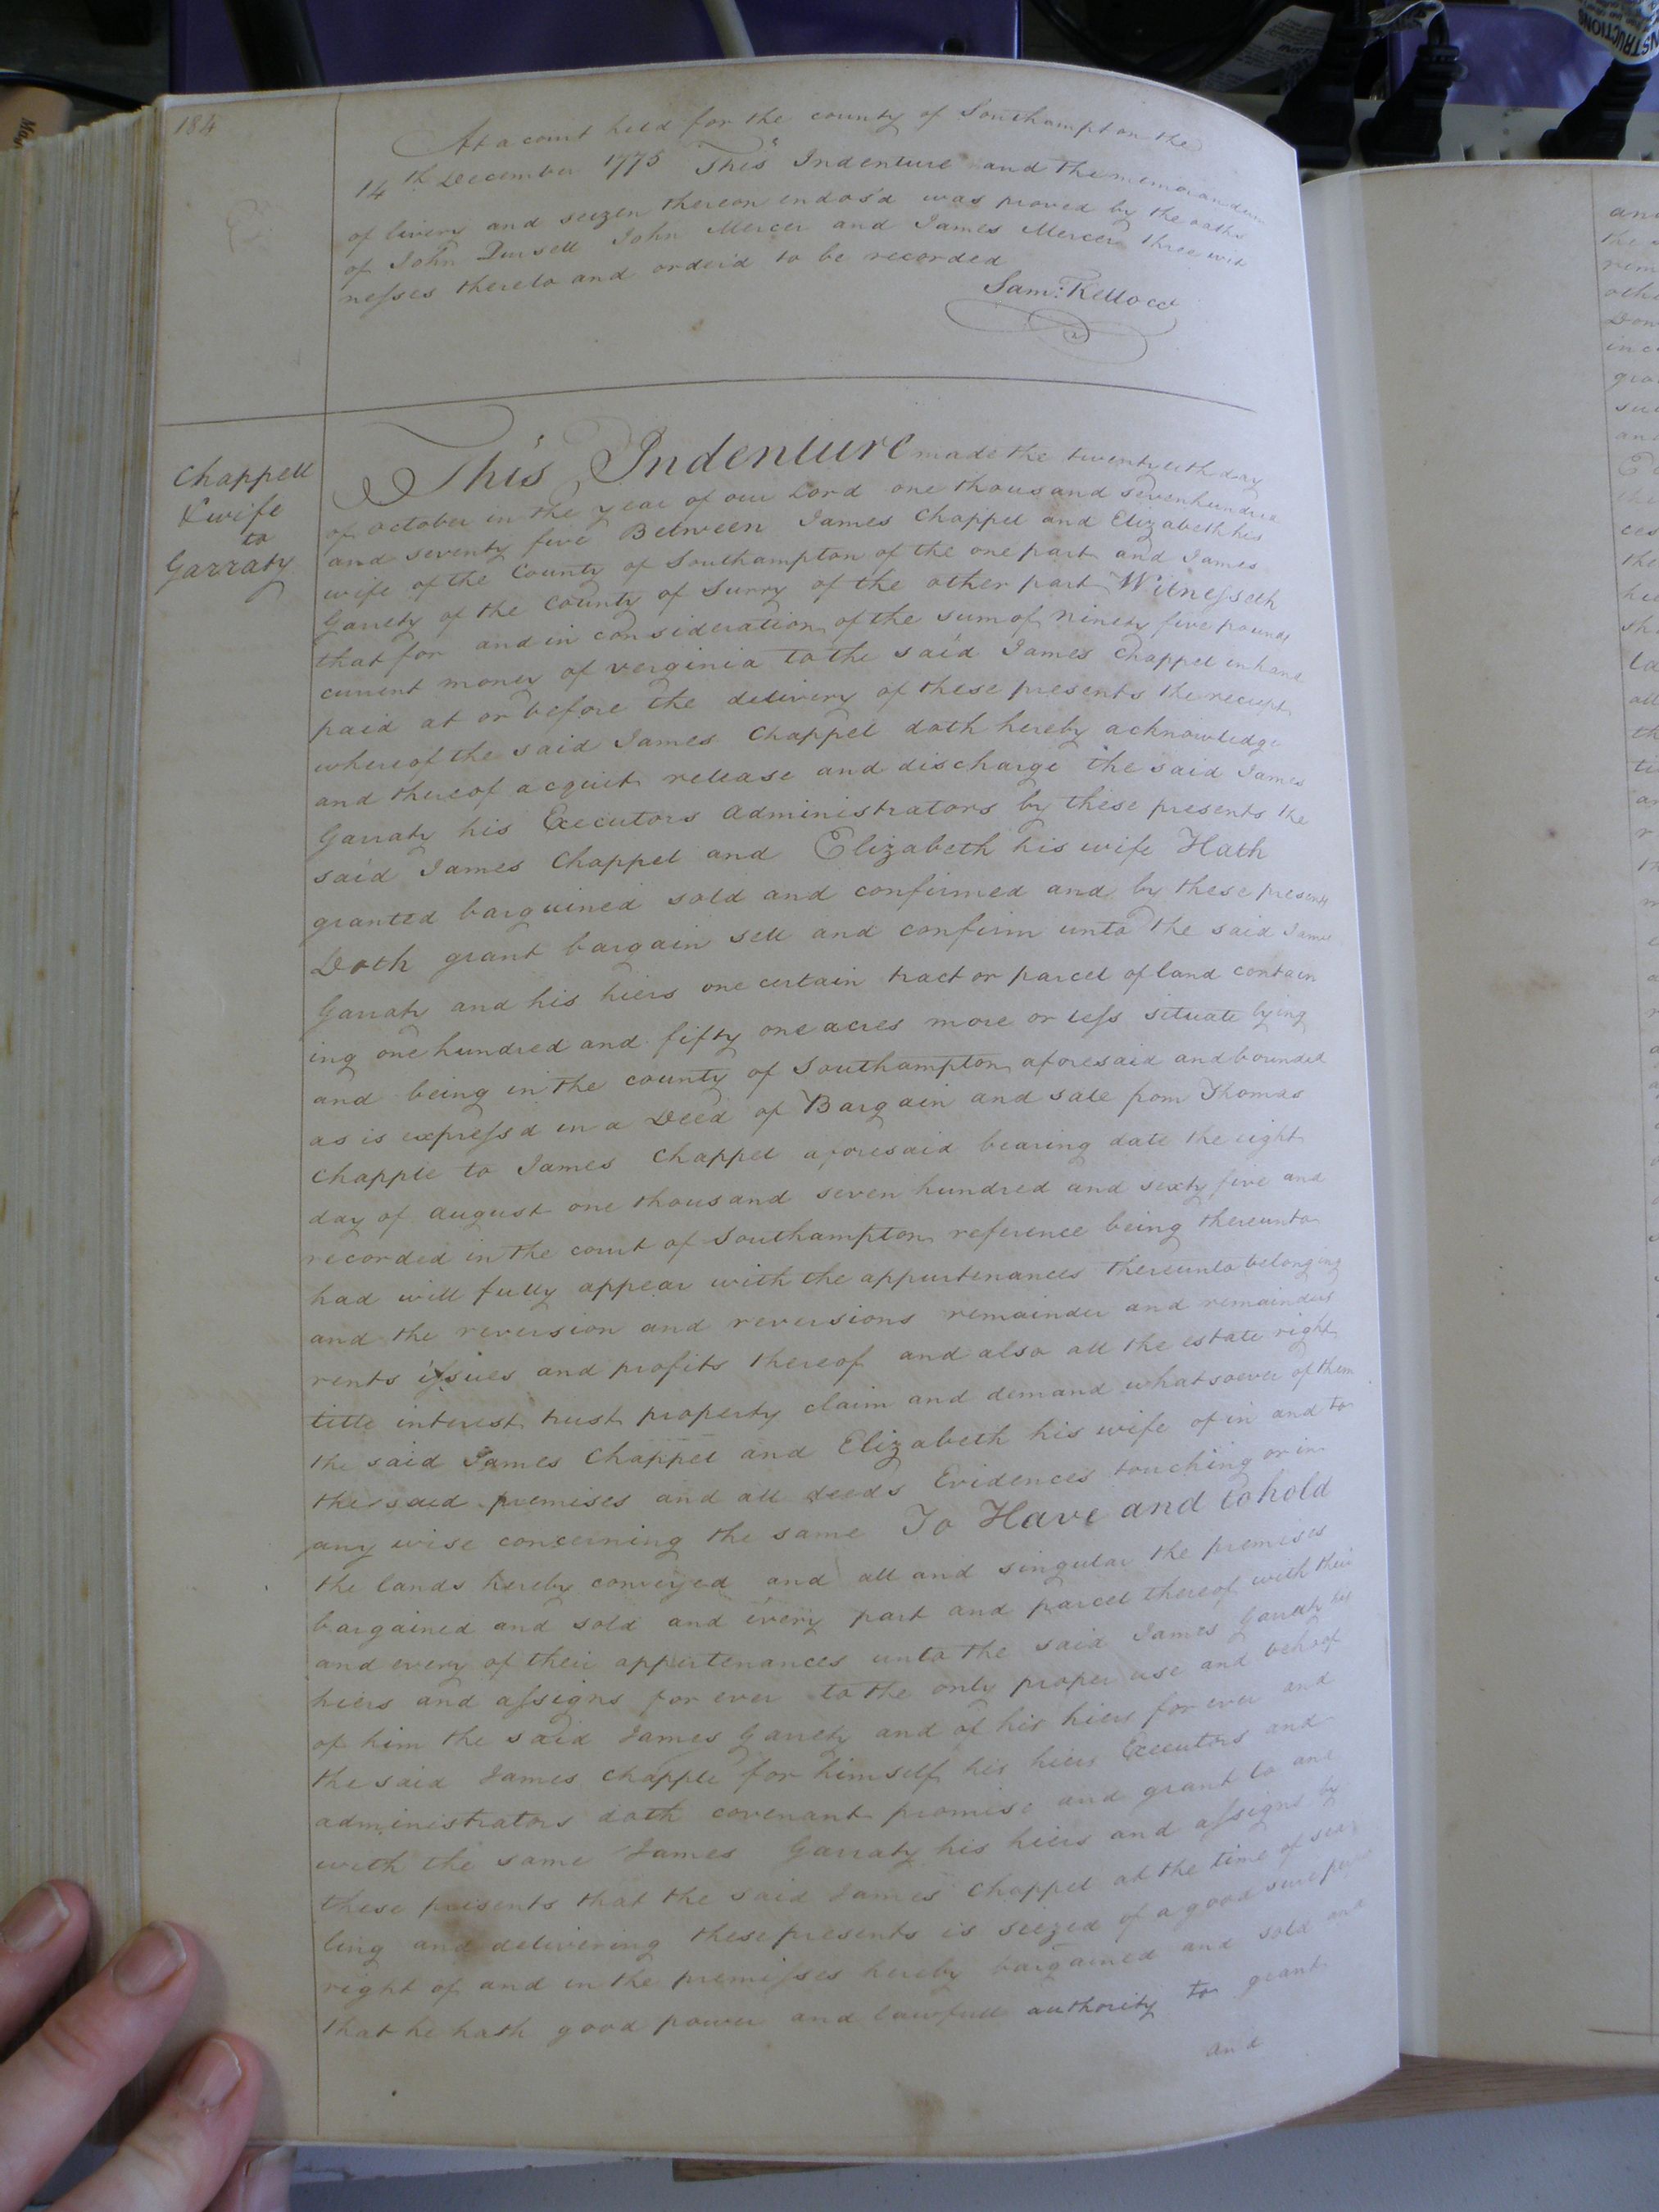 184
At a court held for the county of Southampton the
14th December 1775 This Indenture and the memorandum
of livery and seizen thereon endos'd was proved by the oaths
of John Pursell John Mercer and James Mercer three wit
nesses thereto and order'd to be recorded
Sam: Kello CC
Chappell
& wife
to
Garraty
This Indenture made the twentyeth day
of October in the year of our Lord one thousand sevenhundred
and seventy five Between James Chappel and Elizabeth his
wife of the County of Southampton of the one part and James
Garrety of the County of Surry of the other part Witnesseth
that for and in consideration of the sum of ninety five pounds
current money of verginia to the said James Chappel in hand
paid at or before the delivery of these presents the receipt
whereof the said James Chappel doth hereby acknowledge
and thereof acquit release and discharge the said James
Garraty his Executors administrators by these presents the
said James Chappel and Elizabeth his wife Hath
granted barguined sold and confirmed and by these presents
Doth grant bargain sell and confirm unto the said James
Garraty and his hiers one certain tract or parcel of land contain
ing one hundred and fifty one acres more or less situate lying
and being in the county of Southampton aforesaid and bounded
as is express'd in a Deed of Bargain and sale from Thomas
Chapple to James Chappel aforesaid bearing date the eight
day of august one thousand seven hundred and sexty five and
recorded in the court of Southampton reference being thereunto
had will fully appear with the appurtenances thereunto belonging
and the reversion and reversions remainder and remainders
rents issues and profits thereof and also all the estate right
title interest trust property claim and demand whatsoever of them
the said James Chappel and Elizabeth his wife of in and to
the said premises and all deeds Evidences touching or in
any wise concerning the same To Have and to hold
the lands hereby conveyed and all and singular the premises
bargained and sold and every part and parcel thereof with their
and every of their appertenances unto the said James Garraty his
hiers and assigns for ever to the only proper use and behoof
of him the said James Garrety and of his hiers for ever and
the said James Chapple for himself his hiers Executors and
administrators doth covenant promise and grant to and
with the same James Garraty his hiers and assigns by
these presents that the said James Chappel at the time of sea
ling and delivering these presents is seized of a good sure
right of and in the premisses hereby bargained and sold and
that he hath good power and lawfull authority to grant
and